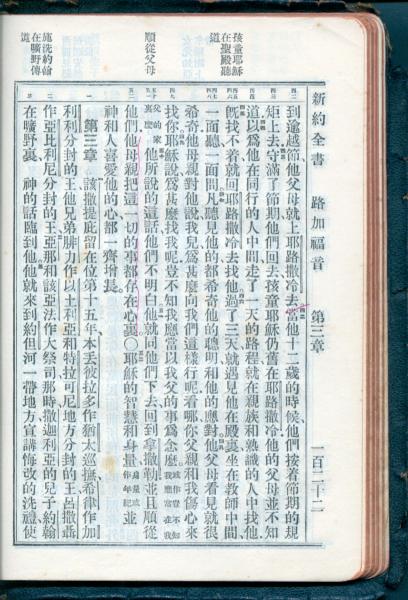 新約全書 路加福音 第三章 一百二十二
孩童耶穌
在聖殿聽
道
到逾越節他父母就上耶路撒冷去當他十二歲的時候他們按着節期的規
矩上去守滿了節期他們回去孩童耶穌仍舊在耶路撒冷他的父母並不知
道以爲他在同行的人中間走了一天的路程就在親族和熟識的人中找他
旣找不着就回耶路撒冷去找他過了三天就遇見他在殿裏坐在教師中間
一面聽一面問凡聽見他的都希奇他的聰明和他的應對他父母看見就很
希奇他母親對他說我兒爲甚麼向我們這樣行呢看哪你父親和我傷心來
順從父母
找你耶穌說爲甚麼找我呢豈不知我應當以我父的事爲念麼或作豈不知我應當在我
父的家裏麼他所說的這話他們不明白他就同他們下去回到拿撒勒並且順從
他們他母親把這一切的事都存在心裏〇耶穌的智慧和身量身量或作年紀並
神和人喜愛他的心都一齊增長
施洗約翰
在曠野傳
道
第三章 該撒提庇留在位第十五年本丟彼拉多作猶太巡撫希律作加
利利分封的王他兄弟腓力作以土利亞和特拉可尼地方分封的王呂撒聶
作亞比利尼分封的王亞那和該亞法作大祭司那時撒迦利亞的兒子約翰
在曠野裏 神的話臨到他他就來到約但河一帶地方宣講悔改的洗禮使